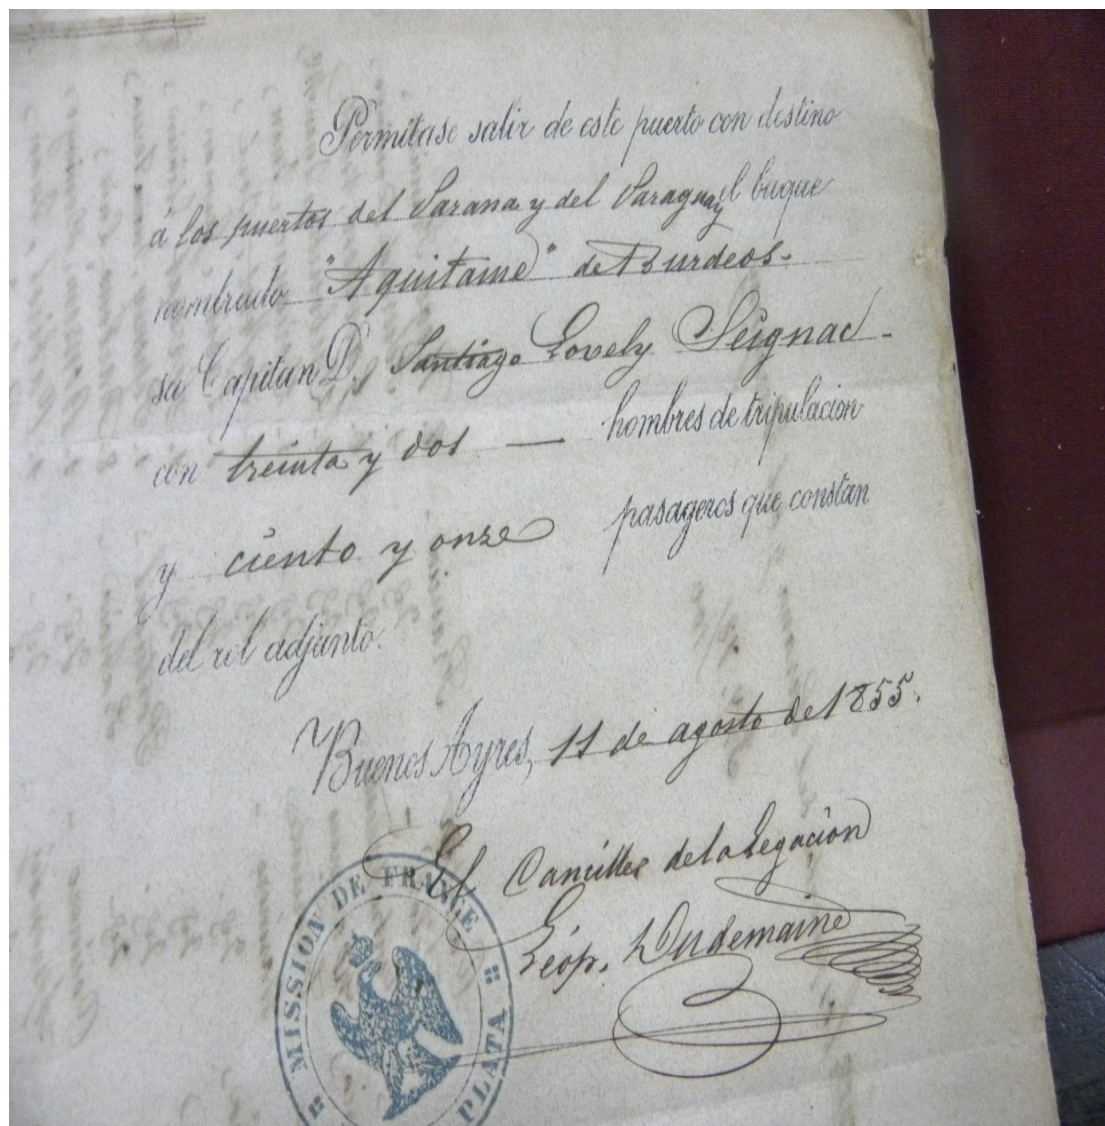 Permitase salir de este puerto con destino
á los puertos del Parana y del Paraguay el buque
nombrado "Aquitaine" de Burdeos.
su Capitan D. Santiago Lovely Seignac
con treinta y dos — hombres de tripulacion
y ciento y onze pasageros que constan
del rol adjunto.
Buenos Ayres, 11 de agosto de 1855.
El Canciller de la Legacion
Léop. Dudemaine
MISSION DE FRANCE
PLATA